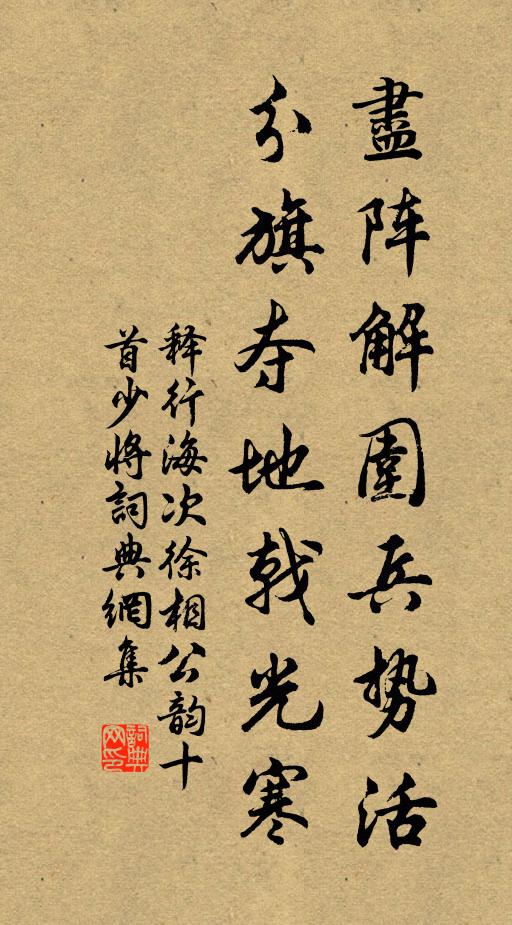 盡阵解圍兵势活
分旗夺地戟光寒
释行海次徐相公韵十
首少將詞典網集
詞典
网印